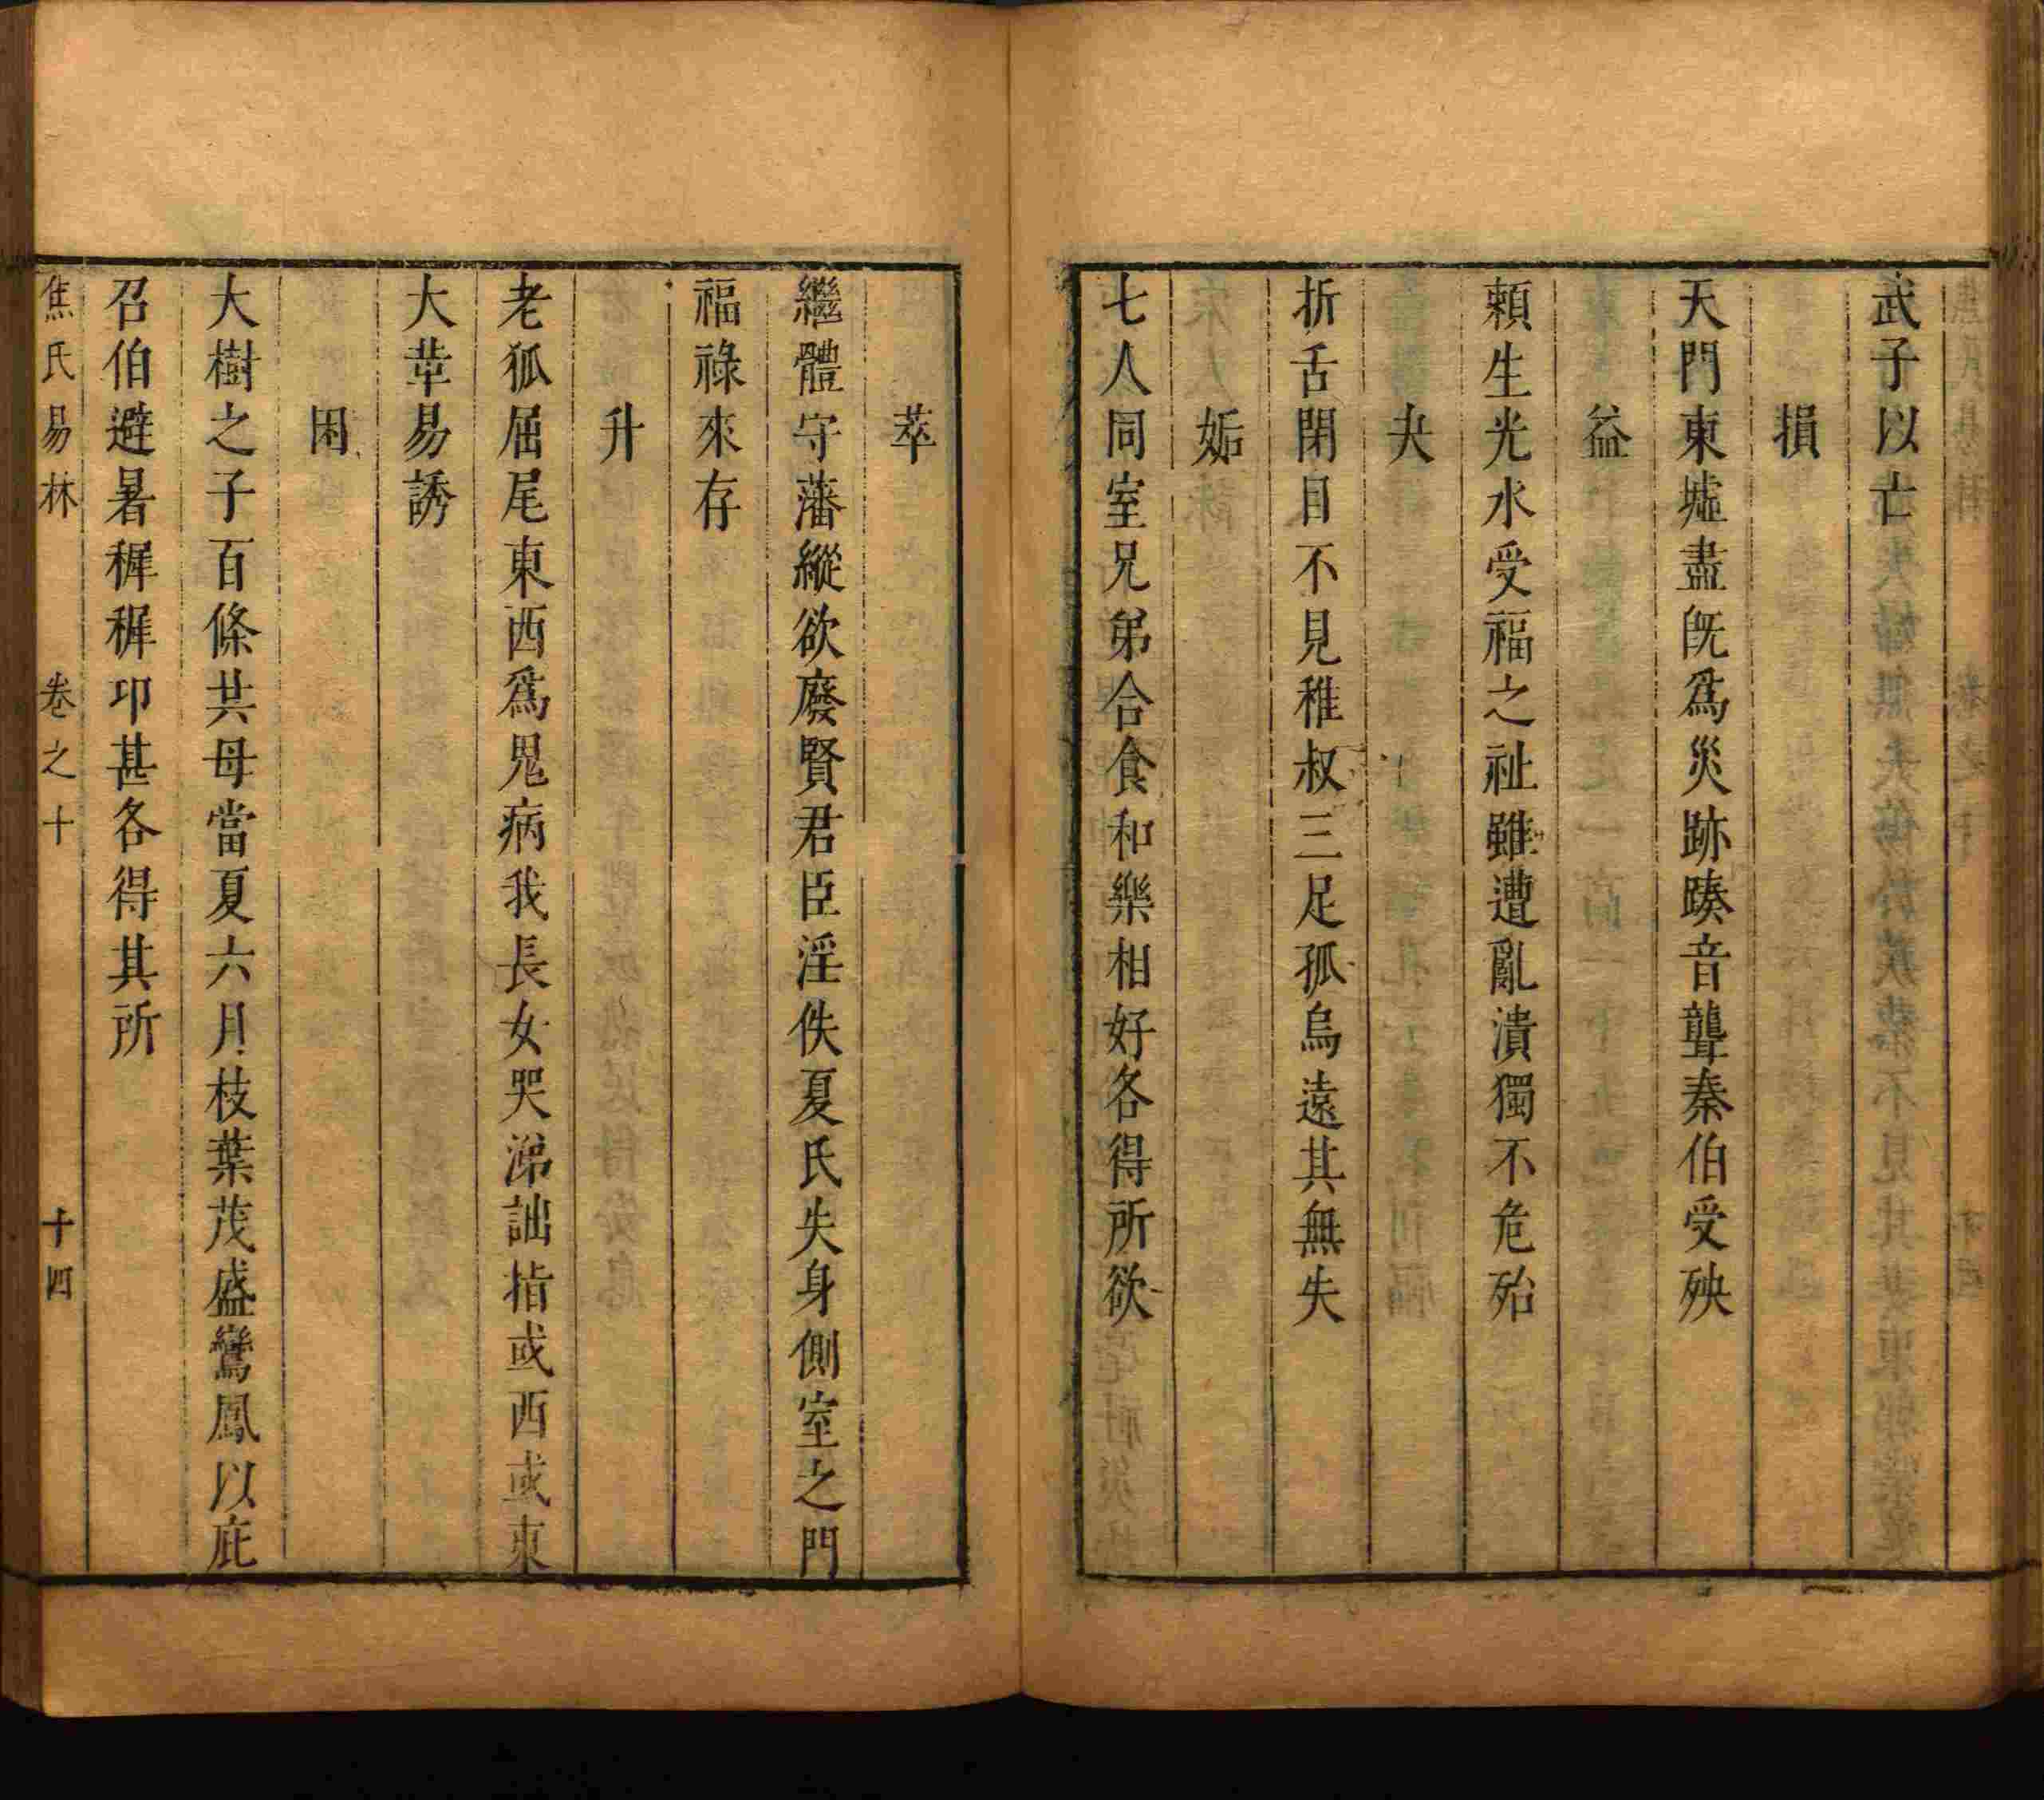 武子以亡
損
天門東墟盡旣爲災跡踈音聾秦伯受殃
益
頼生光水受福之祉雖遭亂潰獨不危殆
夬
折舌閉目不見稚叔三足孤烏遠其無失
姤
七人同室兄弟合食和樂相好各得所欲
萃
繼體守藩縱欲廢賢君臣淫佚夏氏失身側室之門
福祿來存
升
老狐屈尾東西爲鬼病我長女哭涕詘指或西或東
大華易誘
困
大樹之子百條共母當夏六月枝葉茂盛鸞鳳以庇
召伯避暑穉穉卬甚各得其所
焦氏易林 卷之十 十四